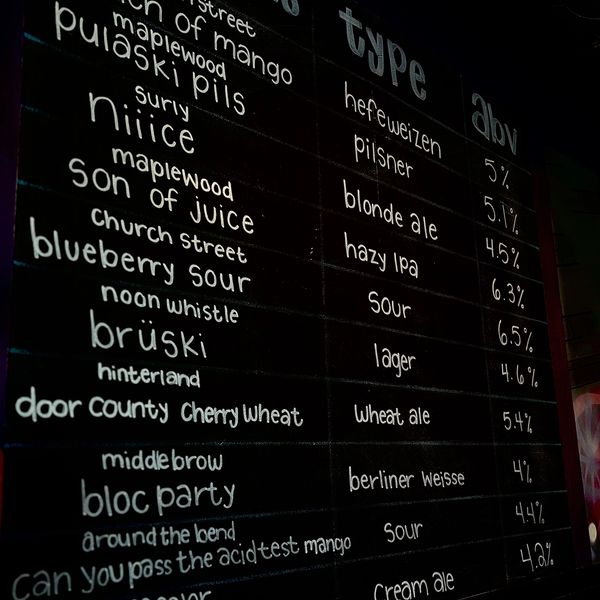 street
type
abv
of mango
hefeweizen
5%
maplewood
pulaski pils
pilsner
5.1%
surly
niiice
blonde ale
4.5%
maplewood
son of juice
hazy ipa
6.3%
church street
blueberry sour
sour
6.5%
noon whistle
brüski
lager
4.6%
hinterland
door county cherry wheat
wheat ale
5.4%
middlebrow
bloc party
berliner weisse
4%
around the bend
can you pass the acid test mango
sour
4.4%
cream ale
4.2%